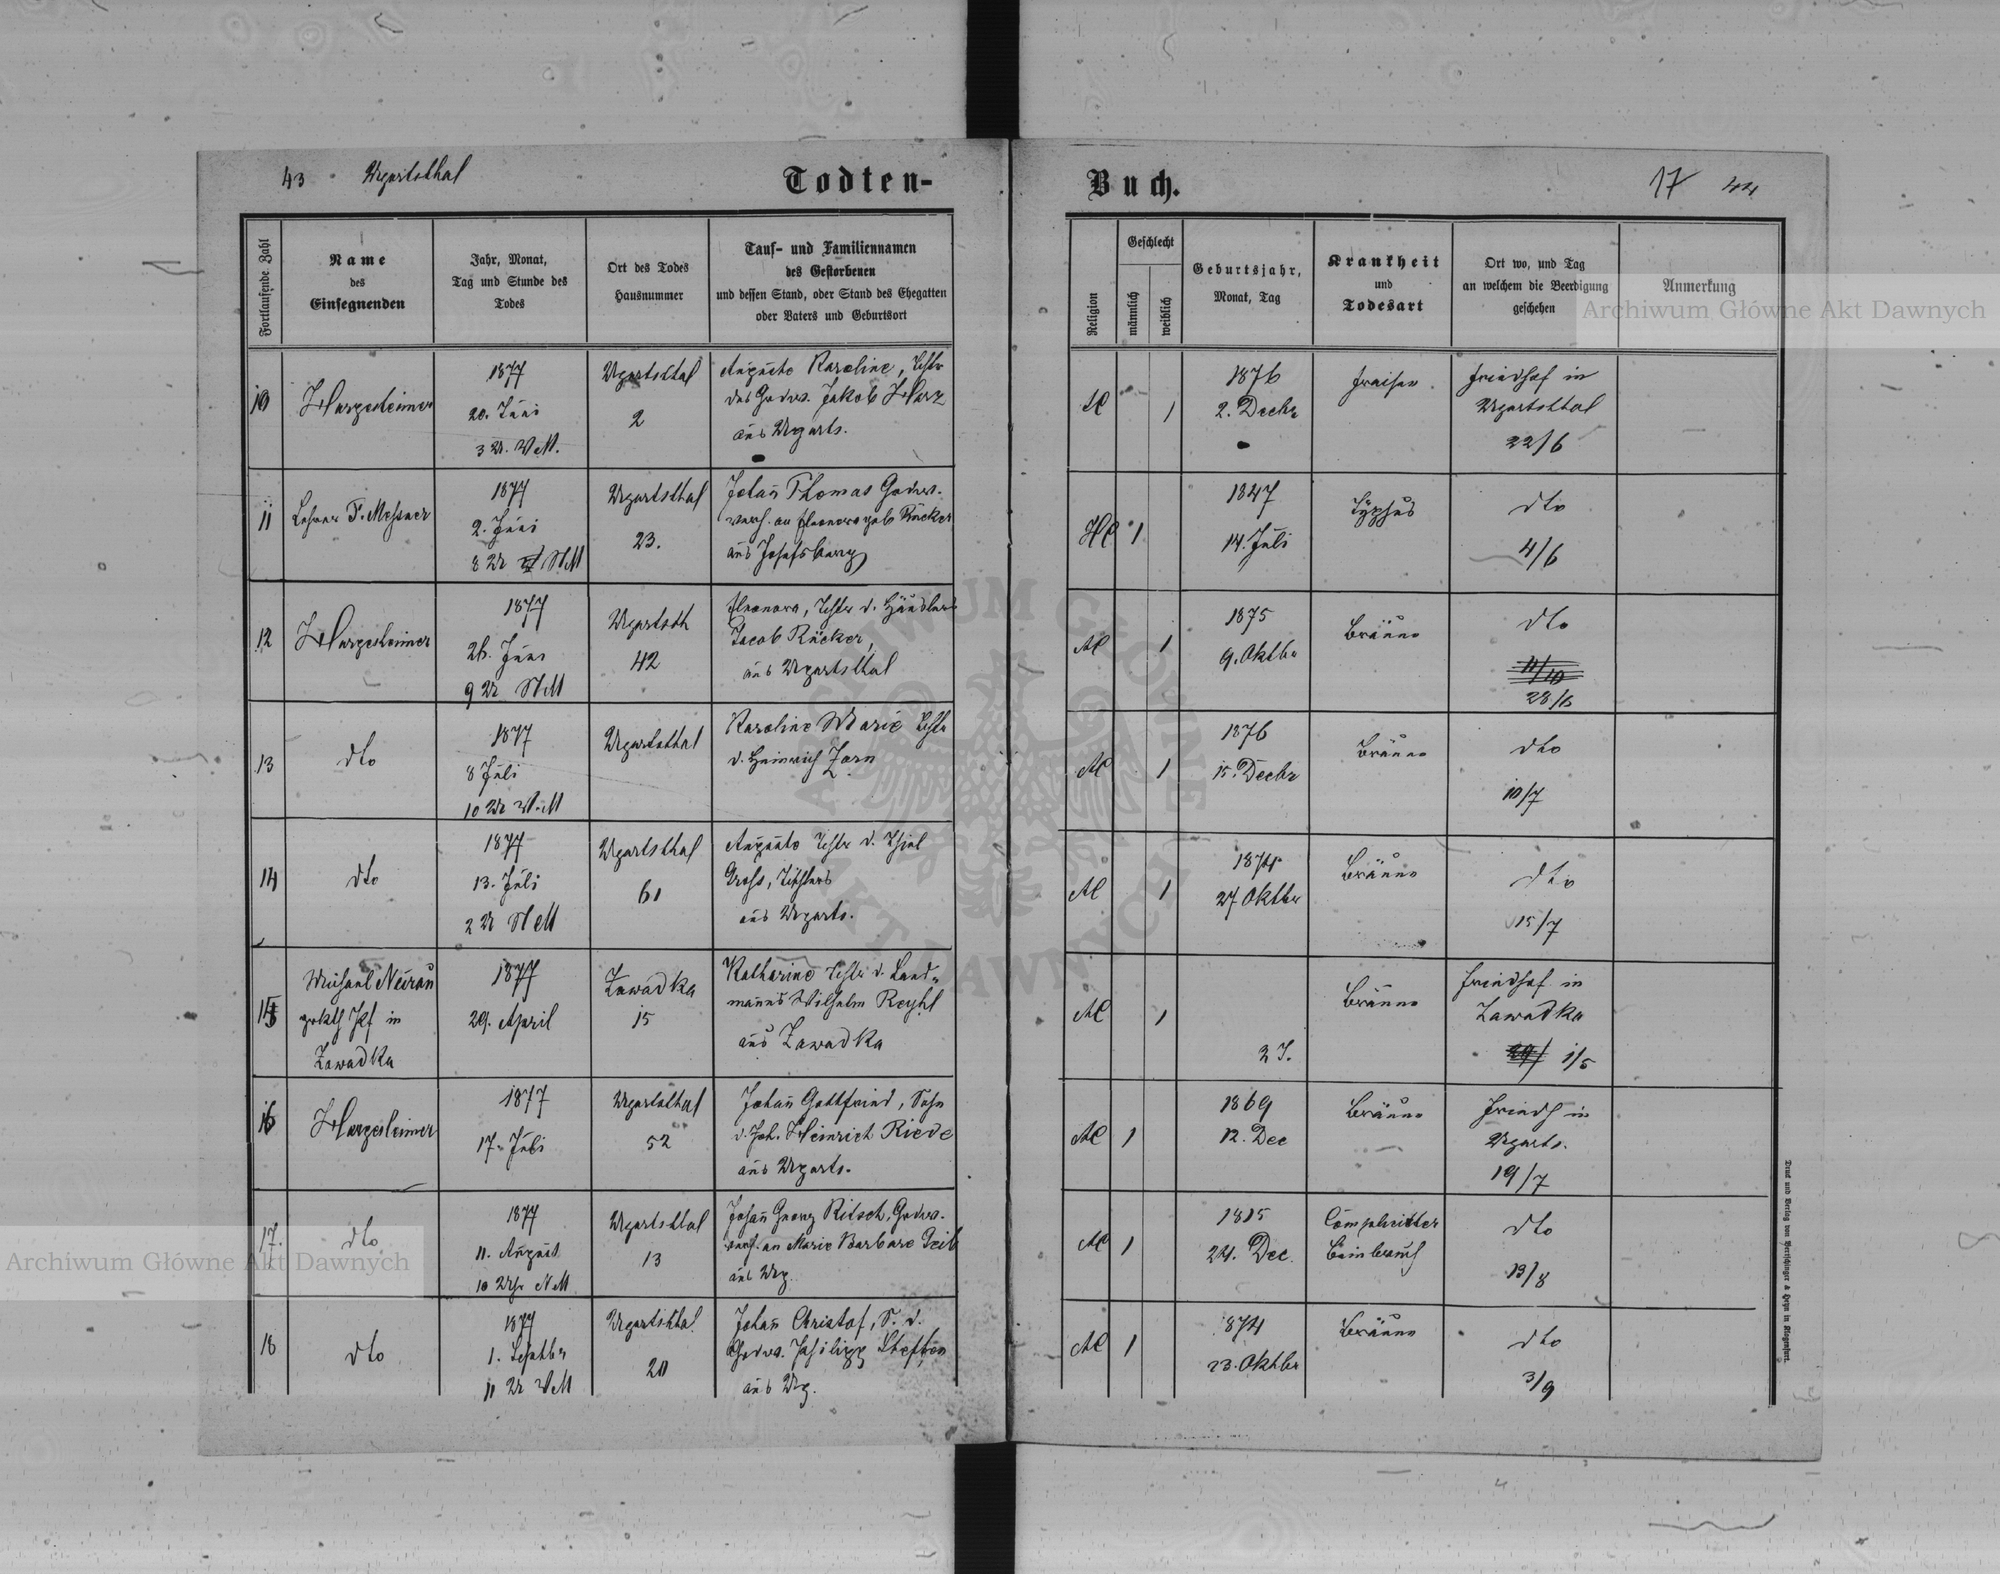 43 Ugartsthal
Todten-
Buch.
17 44
Fortlaufende Zahl
Name
des
Einsegnenden
Jahr, Monat,
Tag und Stunde des
Todes
Ort des Todes
Hausnummer
Tauf- und Familiennamen
des Gestorbenen
und dessen Stand, oder Stand des Ehegatten
oder Vaters und Geburtsort
Religion
Geschlecht
männlich
weiblich
Geburtsjahr,
Monat, Tag
Krankheit
und
Todesart
Ort wo, und Tag
an welchem die Beerdigung
geschehen
Anmerkung
10
Hargesheimer
1877
20. Juni
3 U. VM.
Ugartsthal
2
Auguste Karoline, Tchtr
des Grdws. Jakob Harz
aus Ugarts.
AC
1
1876
2. Decbr
Fraisen.
Friedhof in
Ugartsthal
22/6
11
Lehrer F. Messner
1877
2. Juni
8 U NM
Ugartsthal
23.
Johañ Thomas Grdws.
verh. an Eleonora geb Rücker
aus Josefsberg
HC
1
1847
14. Juli
Typhus
dto
4/6
12
Hargesheimer
1877
26. Juni
9 U NM
Ugartsth
42
Eleonora, Tchtr d. Händlers
Jacob Rücker,
aus Ugartsthal
AC
1
1875
9. Oktbr
Bräune
dto
11/10
28/6
13
dto
1877
8 Juli
10 U VM
Ugartsthal
Karoline Marie Tchtr
d. Heinrich Zorn
AC
1
1876
15. Decbr
Bräune
dto
10/7
14
dto
1877
13. Juli
2 U NM
Ugartsthal
61
Auguste Tchtr d.
Gross, Tischlers
aus Ugarts.
AC
1
1874
27 Oktbr
Bräune
dto
15/7
15
Michael
in
Zawadka
1877
29. April
Zawadka
15
Katharine Tchtr d. Land-
manns Wilhelm Reyhl
aus Zawadka
AC
1
2 J.
Bräune
Friedhof in
Zawadka
29/ 1/5
16
Hargesheimer
1877
17. Juli
Ugartsthal
52
Johañ Gottfried, Sohn
d. Joh. Heinrich Riede
aus Ugarts.
AC
1
1869
12. Dec
Bräune
Friedh in
Ugarts.
19/7
17.
dto
1877
11. August
10 Uhr NM
Ugartsthal
13
Johañ Georg Ritsch, Grdws.
verh. an Marie Barbara Geib
aus Ug.
AC
1
1815
24. Dec.
Complicirter
Beinbruch
dto
13/8
18
dto
1877
1. Septbr
11 U VM
Ugartsthal.
20
Johañ Christof, S. d.
Grdws. Philipp Steffen
aus Ug.
AC
1
1874
23. Oktbr
Bräune
dto
3/9
Druck und Verlag von Bertschinger & Heyn in Klagenfurt.
Archiwum Główne Akt Dawnych
Archiwum Główne Akt Dawnych
ARCHIWUM GŁÓWNE AKT DAWNYCH